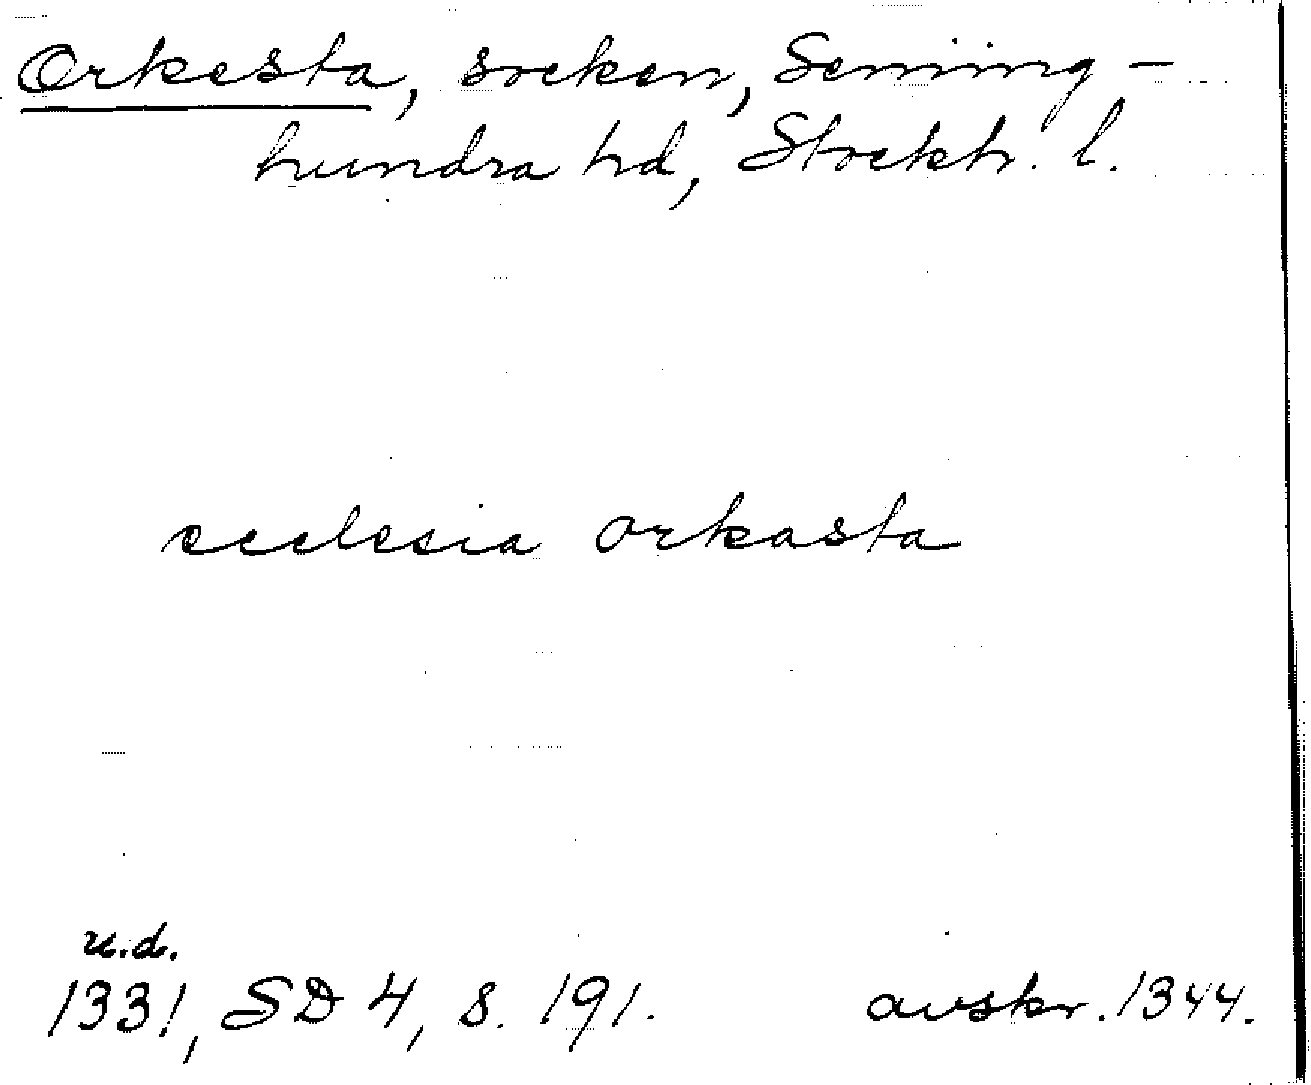 Orkesta, socken, Seming-
hundra hd, Stockh. l.
ecclesia orkasta
u.d.
1331, SD 4, s. 191. avskr. 1344.